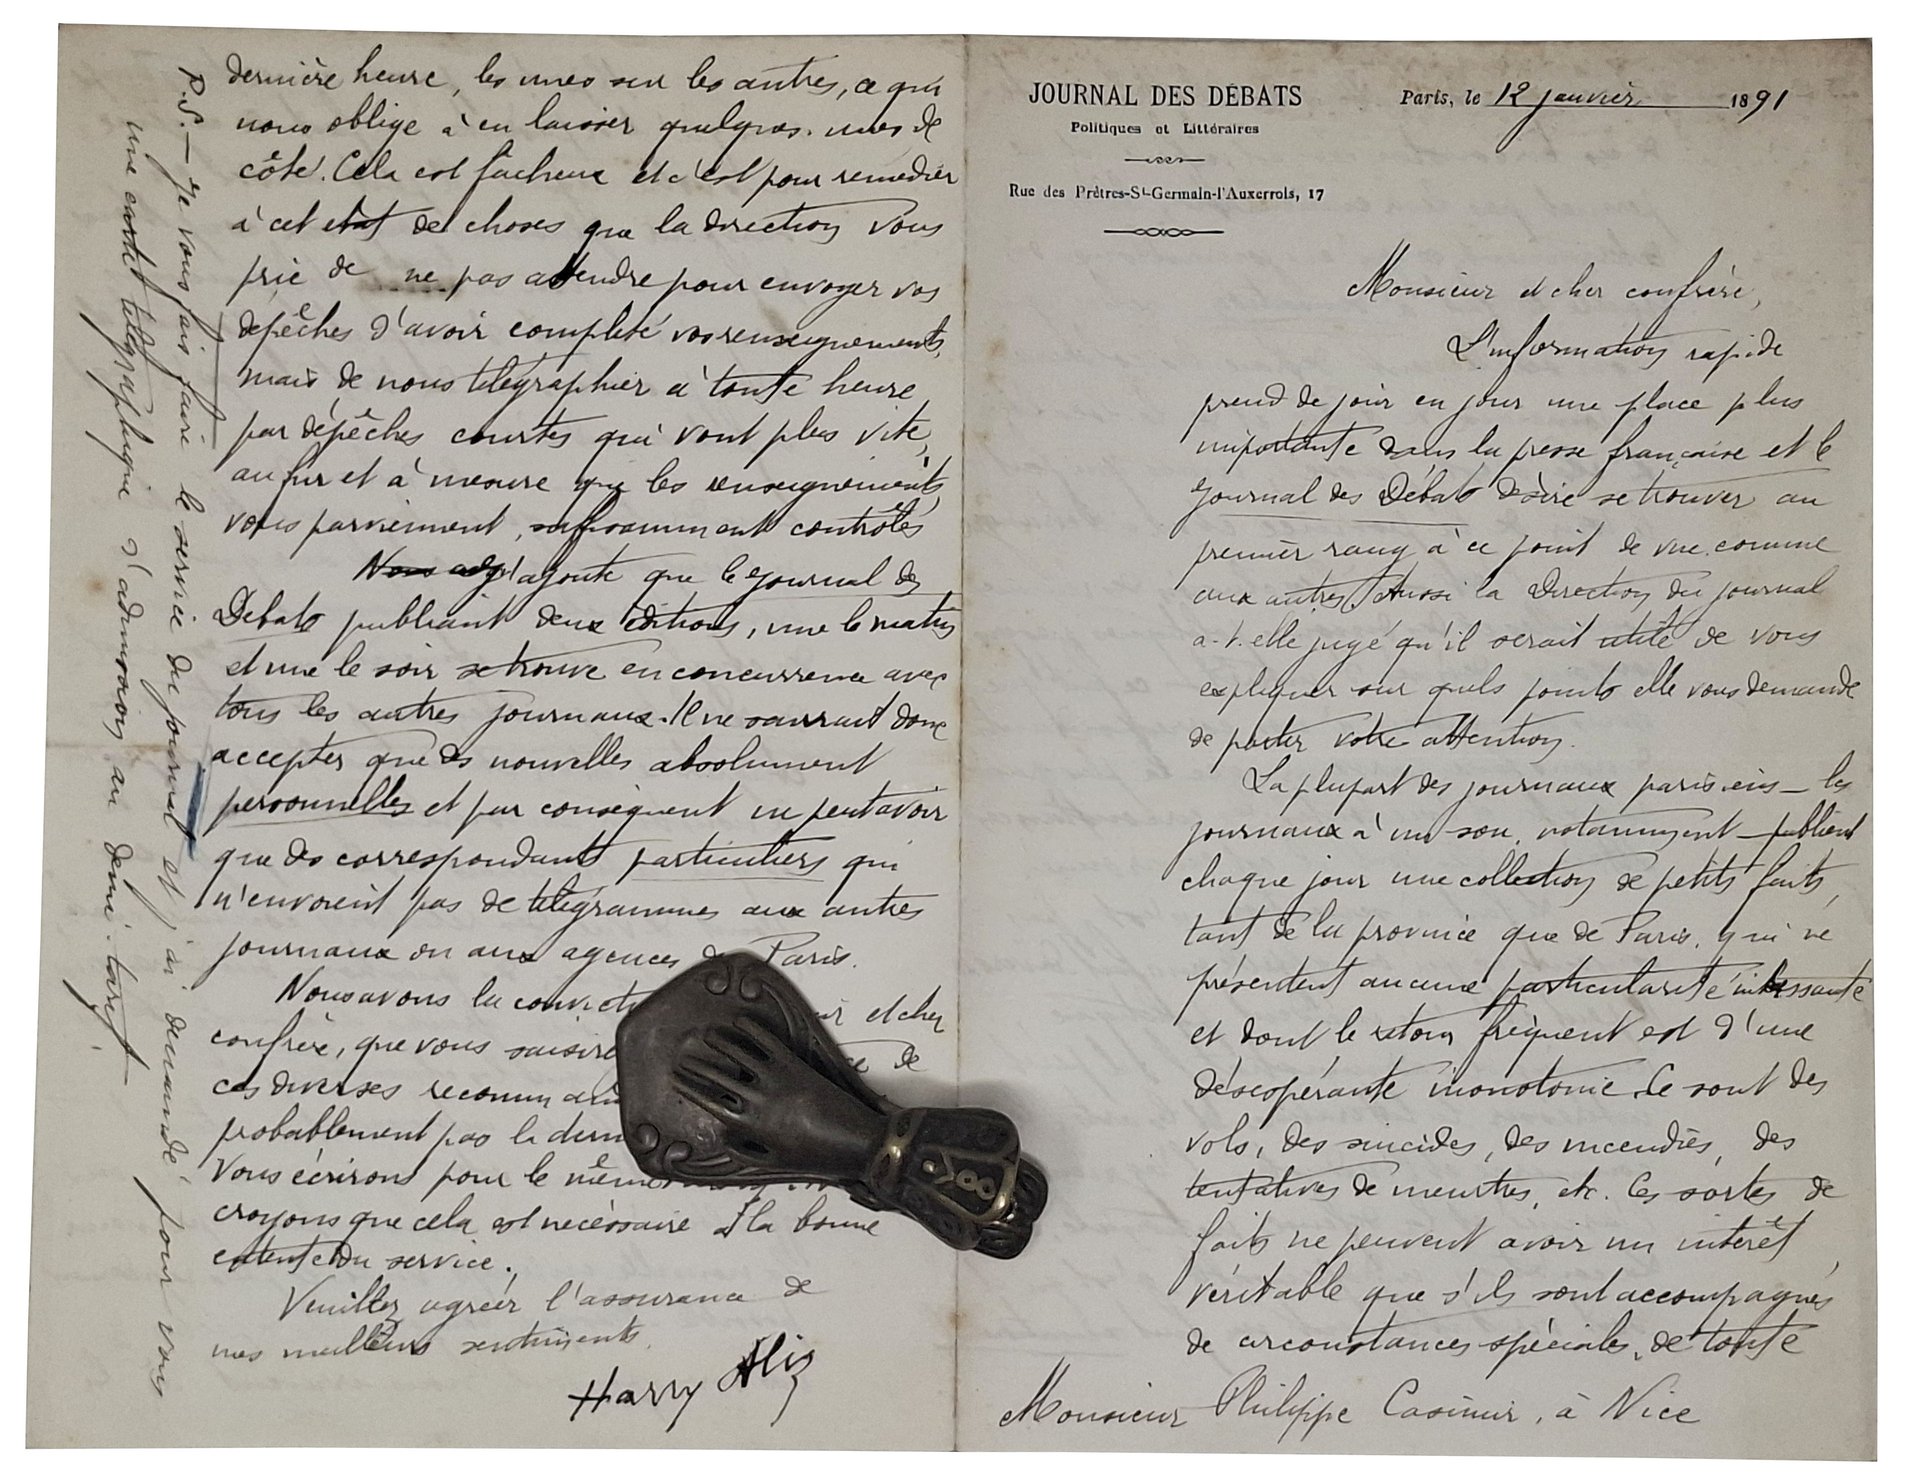 JOURNAL DES DÉBATS
Politiques et Littéraires
Rue des Prêtres-St-Germain-l'Auxerrois, 17
Paris, le 12 janvier 1891
Monsieur et cher confrère,
L'information rapide
prend de jour en jour une place plus
importante dans la presse française et le
Journal des Débats désire se trouver au
premier rang à ce point de vue comme
aux autres. Aussi la Direction du journal
a-t-elle jugé qu'il serait utile de vous
expliquer sur quels points elle vous demande
de porter votre attention.
La plupart des journaux parisiens — les
journaux à un sou, notamment — publient
chaque jour une collection de petits faits,
tant de la province que de Paris, qui ne
présentent aucune particularité intéressante
et dont le retour fréquent est d'une
désespérante monotonie. Ce sont des
vols, des suicides, des incendies, des
tentatives de meurtres, etc. Ces sortes de
faits ne peuvent avoir un intérêt
véritable que s'ils sont accompagnés
de circonstances spéciales, de toute
Monsieur Philippe Casimir, à Nice
dernière heure, les unes sur les autres, ce qui
nous oblige à en laisser quelques-unes de
côté. Cela est fâcheux et c'est pour remédier
à cet état de choses que la direction vous
prie de ne pas attendre pour envoyer vos
dépêches d'avoir complété vos renseignements,
mais de nous télégraphier à toute heure
par dépêches courtes qui vont plus vite,
au fur et à mesure que les renseignements
vous parviennent, suffisamment contrôlés
Nous adj j'ajoute que le Journal des
Débats publiant deux éditions, une le matin
et une le soir se trouve en concurrence avec
tous les autres journaux. Il ne saurait donc
accepter que des nouvelles absolument
personnelles et par conséquent ne peut avoir
que des correspondants particuliers qui
n'envoient pas de télégrammes aux autres
journaux ou aux agences de Paris.
Nous avons la et cher
confrère, que vous de
ces diverses
probablement pas la
vous écrirons pour le même
croyons que cela est nécessaire à la bonne
entente du service.
Veuillez agréer l'assurance de
mes meilleurs sentiments.
Harry Alis
P.S. — Je vous fais faire le service du journal et j'ai demandé pour vous
une carte télégraphique d'admission au demi-tarif.